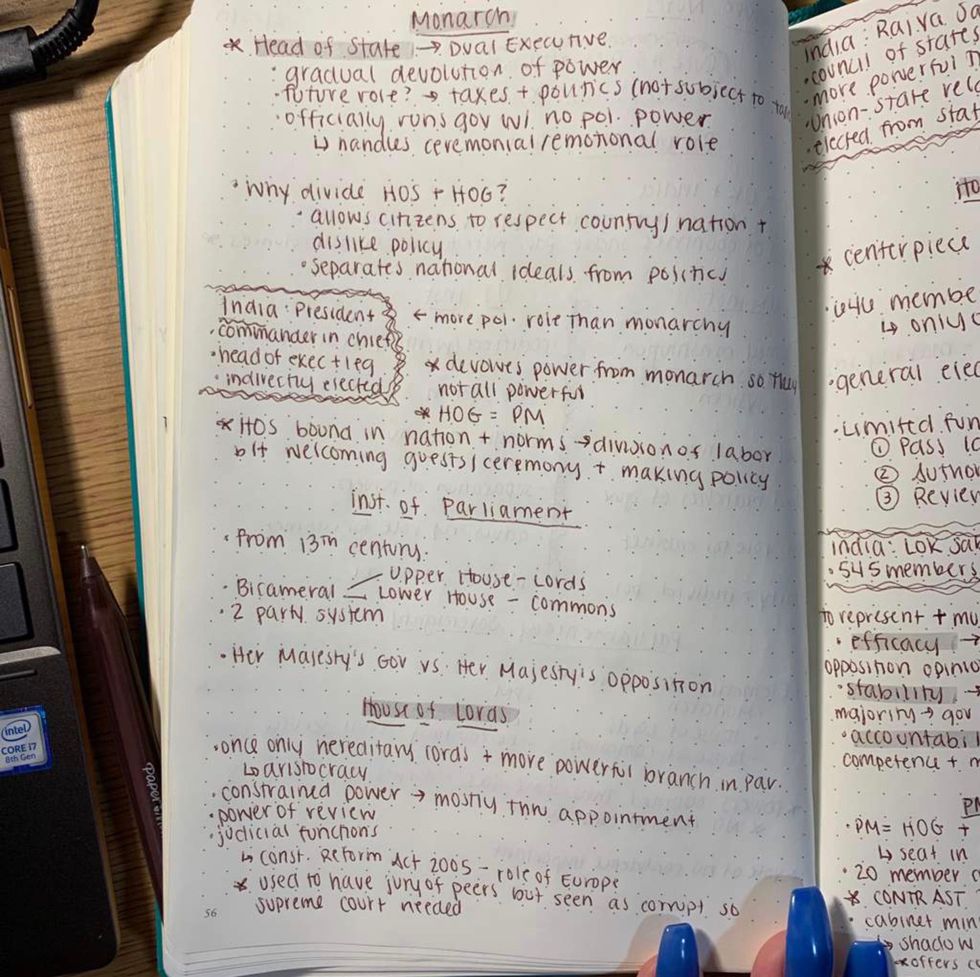 Monarch
* Head of State → Dual Executive
· gradual devolution of power
· future role? → taxes + politics (not subject to
· officially runs gov w/ no pol. power
↳ handles ceremonial/emotional role
· Why divide HOS + HOG?
· allows citizens to respect country/nation +
dislike policy
· separates national ideals from politics
India: President
· commander in chief
· head of exec + leg
· indirectly elected
← more pol. role than monarchy
* devolves power from monarch so they
not all powerful
* HOG = PM
* HOS bound in nation + norms → division of labor
b/t welcoming guests/ceremony + making policy
inst. of Parliament
· from 13th century.
· Bicameral < Upper House - Lords
Lower House - Commons
· 2 party system
· Her Majesty's Gov vs. Her Majesty's opposition
House of Lords
· once only hereditary lords + more powerful branch in Par.
↳ aristocracy
· constrained power → mostly thru appointment
· power of review
· judicial functions
↳ Const. Reform Act 2005 - role of Europe
* used to have jury of peers but seen as corrupt so
supreme court needed
56
India: Rajya Sa
· council of states
· more powerful
· Union-state rel
· elected from sta
* centerpiece
membe
↳ only
· general elec
· Limited fun
① Pass la
② Author
③ Review
India: Lok Sa
· 545 members
to represent + mu
· efficacy →
opposition opinio
· stability →
majority → gov
· accountabil
competence + m
PM
· PM = HOG +
↳ seat in
· 20 member
* CONTRAST
· cabinet min
↳ shadow
* offers
intel
CORE i7
8th Gen
paper